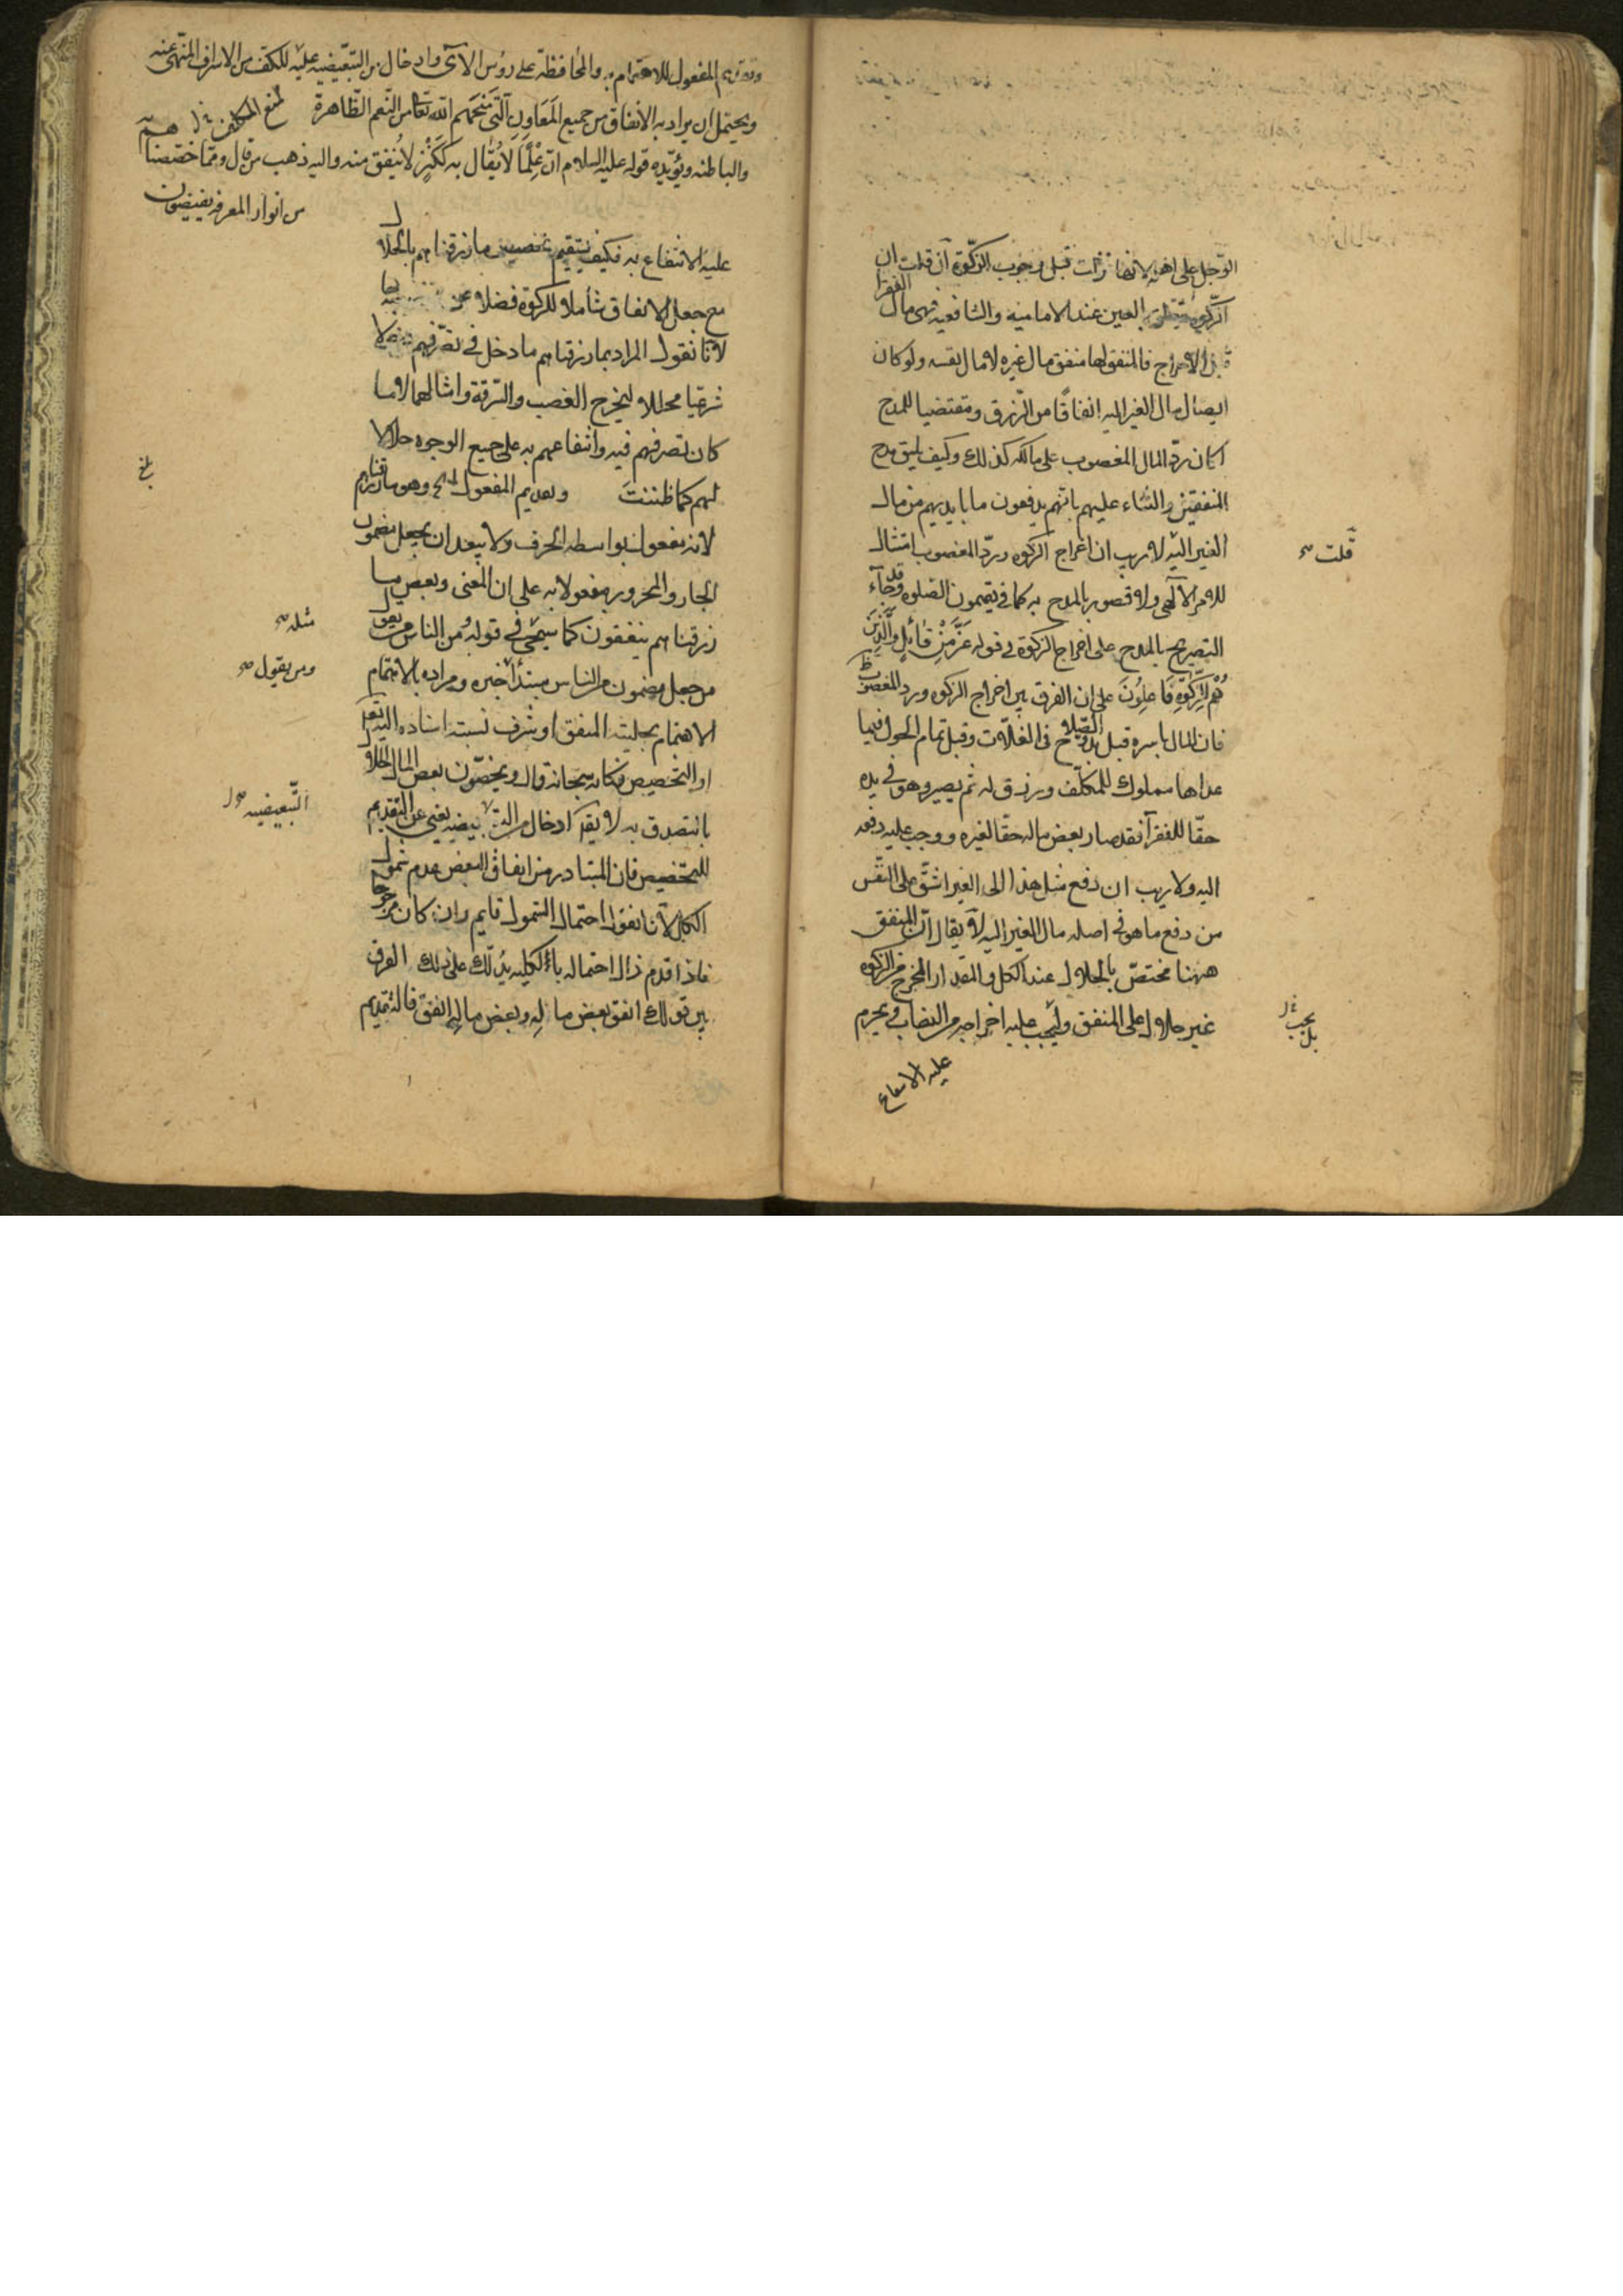 الرجل على اهله لانها نزلت قبل وجوب الزكوة فان قلت ان
الزكوة متعلقة بالعين عند الامامية والشافعية فهي مال الفقرا
قبل الاخراج فالمنفق لها منفق مال غيره لا مال نفسه ولو كان
ايصال مال الغير اليه انفاقًا من الرزق ومقتضيا للمدح
لكان رد المال المغصوب على مالكه كذلك وكيف يليق مدح
المنفقين والثناء عليهم بانهم يدفعون ما بايديهم من مال
الغير اليه لا ريب ان اخراج الزكوة وردّ المغصوب امتثال
قلت
للامر الآلهي ولا قصور بالمدح به كما في يقيمون الصلوة وقد جآء
التصريح بالمدح على اخراج الزكوة في قوله عَزَّ مِنْ قائِلٍ وَالَّذِينَ
هُمْ لِلزَّكوةِ فَاعِلُونَ على ان الفرق بين اخراج الزكوة ورد المغصوب ظ
فان المال باسره قبل بدو الصّلاح فى الغلّات وقبل تمام الحول فيما
عداها مملوك للمكلّف ورزق له ثم يصير وهو في يده
حقّا للفقرآ فقد صار بعض ماله حقا لغيره ووجب عليه دفعه
اليه ولا ريب ان دفع مثل هذا الى الغير اشقّ على النفس
من دفع ما هو في اصله مال الغير اليه لا يقال انّ المنفق
ههنا مختصّ بالحلال عند الكل والمقدار المخرج من الزكوة
غير حلال على المنفق وليجب عليه اخراجه من النصاب ويحرم
بل يجب
عليه الانتفاع
وتقديم المفعول للاهتمام به والمحافظة على رؤس الآى وادخال من التبعيضية عليه للكف عن الاسراف المنهى عنه
ويحتمل ان يراد به الانفاق من جميع المَعَاوِنِ الّتي مَنَحَهُم الله تعالى من النعم الظّاهرة
والباطنه ويؤيّده قوله عليه السلام ان عِلْمًا لا يُقال به كَكَنْزٍ لا يُنفق منه واليه ذهب من قال ومما خصصناهم
من انوار المعرفة يفيضون
عليه الانتفاع به فكيف يستقيم تخصيص ما رزقناهم بالحلال
مع جعل الانفاق شاملا للزكوة فضلا عن
لانا نقول المراد بما رزقناهم ما دخل في تصرفهم دخولا
شرعيا محللا ليخرج الغصب والسرقة وامثالهما لا ما
كان تصرفهم فيه وانتفاعهم به على جميع الوجوه حلالا
لهم كما ظننتَ وتقديم المفعول الخ وهو ما رزقناهم
لانه مفعول بواسطه الحرف ولا يبعد ان يجعل مضمون
الجار والمجرور مفعولا به على ان المعنى وبعض ما
رزقناهم ينفقون كما سيجئ في قوله من الناس من يقول
مثله
من جعل مضمون من الناس مبتدأ خبره ومراده بالاهتمام
ومن يقول
الاهتمام بحليته المنفق او شرف نسبته اسناده اليه تعالى
او التخصيص فكانه سبحانه قال ويخصّون بعض المال الحلال
بالتصدق به لا يقال ادخال من التبعيضيه يغنى عن التقديم
التّبعيضيه
للتخصيص فان المتبادر من انفاق البعض عدم شمول
الكل لانا نقول احتمال الشمول قايم وان كان مرجوحا
فاذا قدم زال احتماله بالكليه يدلك على ذلك الفرق
بين قولك انفق بعض ماله وبعض ماله انفق فالتقديم